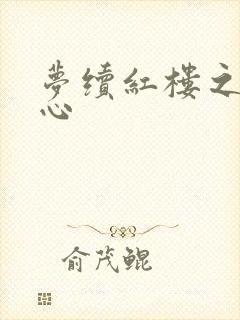 夢續紅樓之
心
俞茂鲲